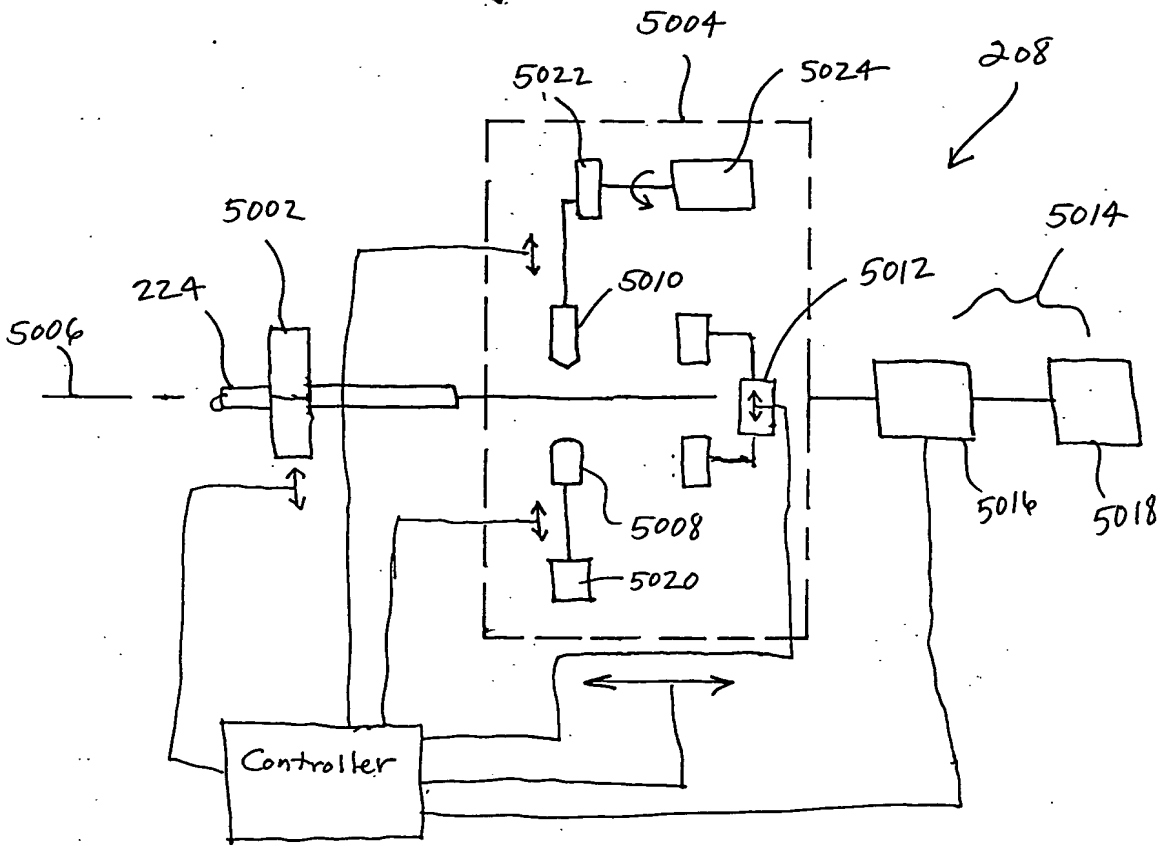 5004
5022
5024
208
5002
5014
224
5010
5012
5006
5008
5016
5018
5020
Controller